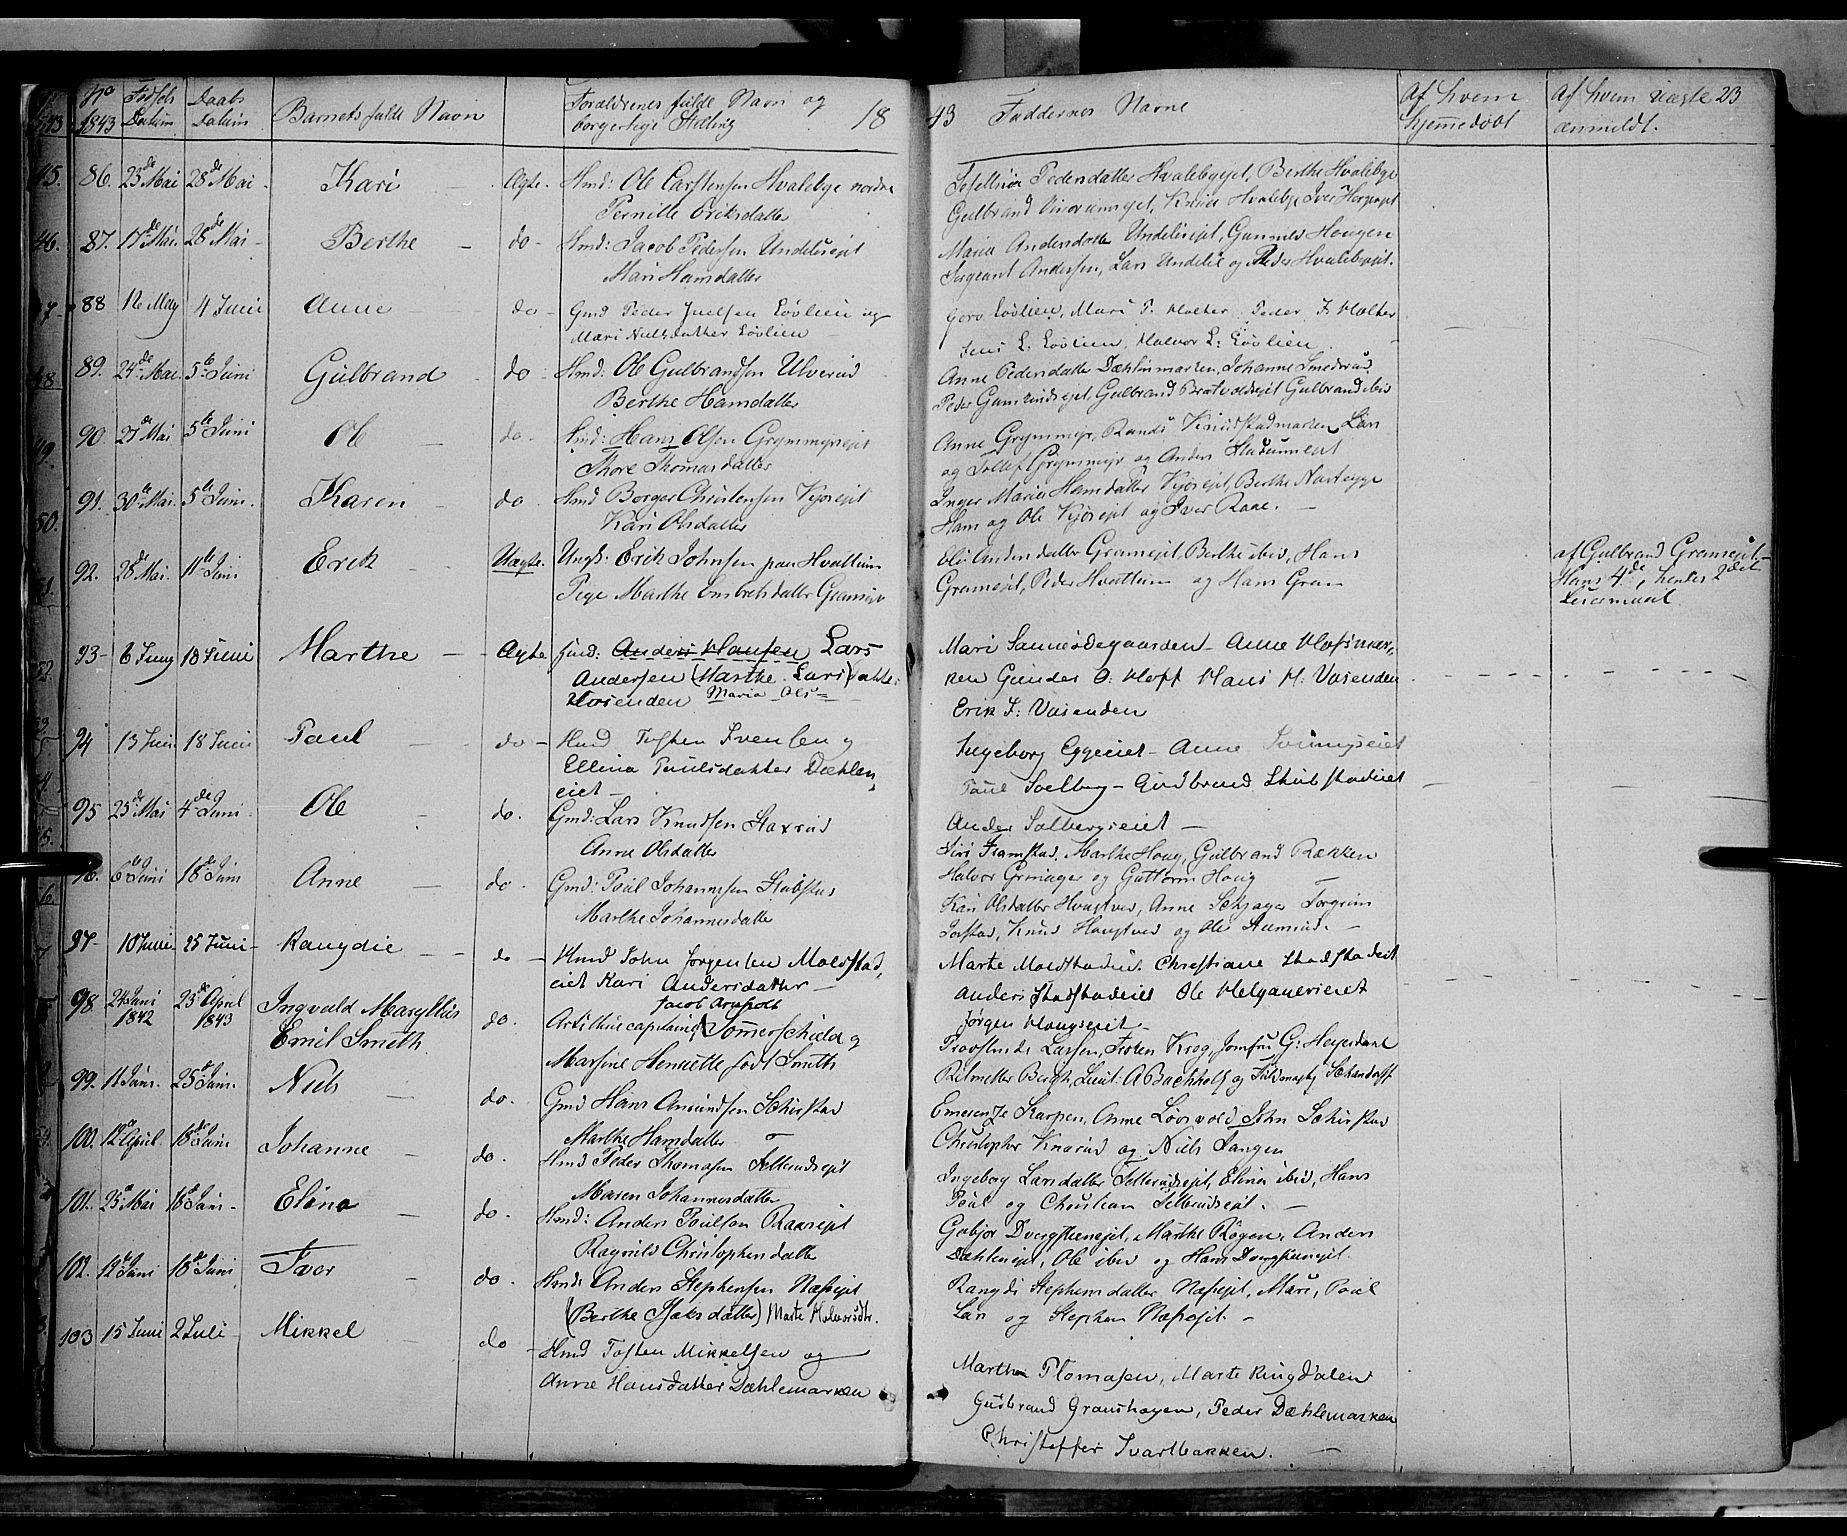 No 1843 Fødsels Datum Daabs Datum Barnets fulde Navn Forældrenes fulde Navn og borgerlige Stilling 18
43 Faddernes Navne Af hvem hjemmedøbt Af hvem uægte anmeldt. 23
86. 23de Mai 28de Mai Kari Ægte. Hmd: Ole Carstensen Hvalebye nordre
Pernille Eriksdatter
Pedersdatter Hvalebyejet, Berthe Hvalebye
Gulbrand Knud Hvalebye Iver
87. 17de Mai. 28de Mai Berthe do Hmd: Jacob Pedersen Undelieejet
Mari Hansdatter
Maria Andersdatter Undelieejet, Gunnild Haugen
Sergeant Andersen, Lars Undelie og Peder Hvalebyejet.
88 12 May 4 Juni Anne do Gmd Peder Juelsen Lovlien og
Mari Nielsdatter Lovlien
Goro Lovlien, Mari P. Holter Peder J. Holter
Jens L. Lovlien, Halvor L: Lovlien
89. 24de Mai. 5te Juni Gulbrand do Hmd: Ole Gulbrandsen Ulverud
Berthe Hansdatter
Anne Pedersdatter Dæhlinmarken, Johanne Smedsrud
Peder Gulbrand Bratvoldsejet Gulbrand ibid
90. 27de Mai 5te Juni Ole do. Hmd: Hans Olsen Grymmyrejet
Thore Thomasdatter
Anne Grymmyr, Randi Knudstadmarken Lars
og Tollef Grymmyr og Anders
91. 30te Mai. 5te Juni. Karen do. Hmd Borger Christensen Kjosejet
Kari Olsdatter
Inger Maria Hansdatter Kjosejet, Berthe
Hans og Ole Kjosejet og Iver Raae.
92. 28de Mai. 11te Juni Erik Uægte. Ungk: Erik Johnsen paa Hvattum
Pige Marthe Embretsdatter Gramsejet
Andersdatter Gramsejet, Berthe ibid, Hans
Gramsejet, Peder Hvattum og Hans Gran
af Gulbrand Gramsejet
Hans 4de, hendes 2det
Leiermaal
93 6 Juny 18 Juni Marthe Ægte Anders Hansen Lars
Andersen (Marthe Lars)datter
Vasenden Maria Ols=
Mari Sanneødegaarden Anne Hofsmar-
ken Gunder O. Hoff Hans H. Vasenden
Erik J: Vasenden
94 13 Juni 18 Juni Paul do Hmd Tosten Svensen og
Ellina Paulsdatter Dæhlen
eiet
Ingeborg Eggeeiet Anne
Paul Soelberg Gudbrand Skubstadeiet
Anders Solbergseiet
95 25de Mai 4de Juni Ole do. Gmd: Lars Knudsen Staxrud
Anne Olsdatter
Siri Framstad, Marthe Houg, Gulbrand Rækken
Halvor Grinager og Guttorm Houg
96. 6te Juni 18de Juni Anne do. Gmd: Poul Johannesen Skubstad
Marthe Johannesdatter
Kari Olsdatter Hougtvedt, Anne Schjager Torgrim
Josstad, Knud Hougtved og Ole Aamund.
97 10 Juni 25 Juni Rangdie do Hmd John Jørgensen Moldstad,
eiet Kari Andersdatter
Marte Moldstadeiet. Christiane Stadstadeiet
Anders Stadstadeiet Ole Helganerieiet
Jørgen Hougseiet
98. 24 Juni 1842 23de April 1843 Ingvald Marsyllius
Emil Smith do. Artilliecapitaine Jacob Arnholdt Sommerschield og
Marsine Henriette født Smith
Provstinde Lassen, Frøken Krog, Jomfru G: Heyerdahl
Ritmester Bergh, Lieut: A Bachhoff og
99. 11 Juni. 25de Juni. Niels do. Gmd Hans Amundsen Schirstad
Marthe Hansdatter
Emerentze Karpen, Anne Løvsvold John Schirstad
Christopher Knarud og Niels Tangen
100. 12te April 18de Juni Johanne do. Hmd Peder Thomasen Sellerudsejet
Maren Johannesdatter
Ingeborg Larsdatter Sellerudsejet, Elina ibid, Hans
Poul og Christian Sellerudsejet.
101. 25de Mai 18de Juni. Eline do. Hmd: Anders Poulsen Raaesejet
Ragnild Christophersdatter
Gubjør Dvergsteensejet, Marthe Røgen, Anders
Dæhlenejet, Ole ibid og Hans Dvergsteensejet
102. 12te Juni 18de Juni Iver do. Hmd: Anders Stephensen Næsejet
(Berthe Isaksdatter) Marte Halvorsdtr.
Rangdi Stephensdatter Næsejet, Mari, Poul
Lars og Stephen Næsejet.
103 15 Juni 2 Juli Mikkel do Hmd Tosten Mikkelsen og
Anne Hansdatter Dæhlemarken
Marthe Thomasen, Marte Ringdalen
Gudbrand Granshagen, Peder Dæhlemarken
Christoffer Svartbakken.